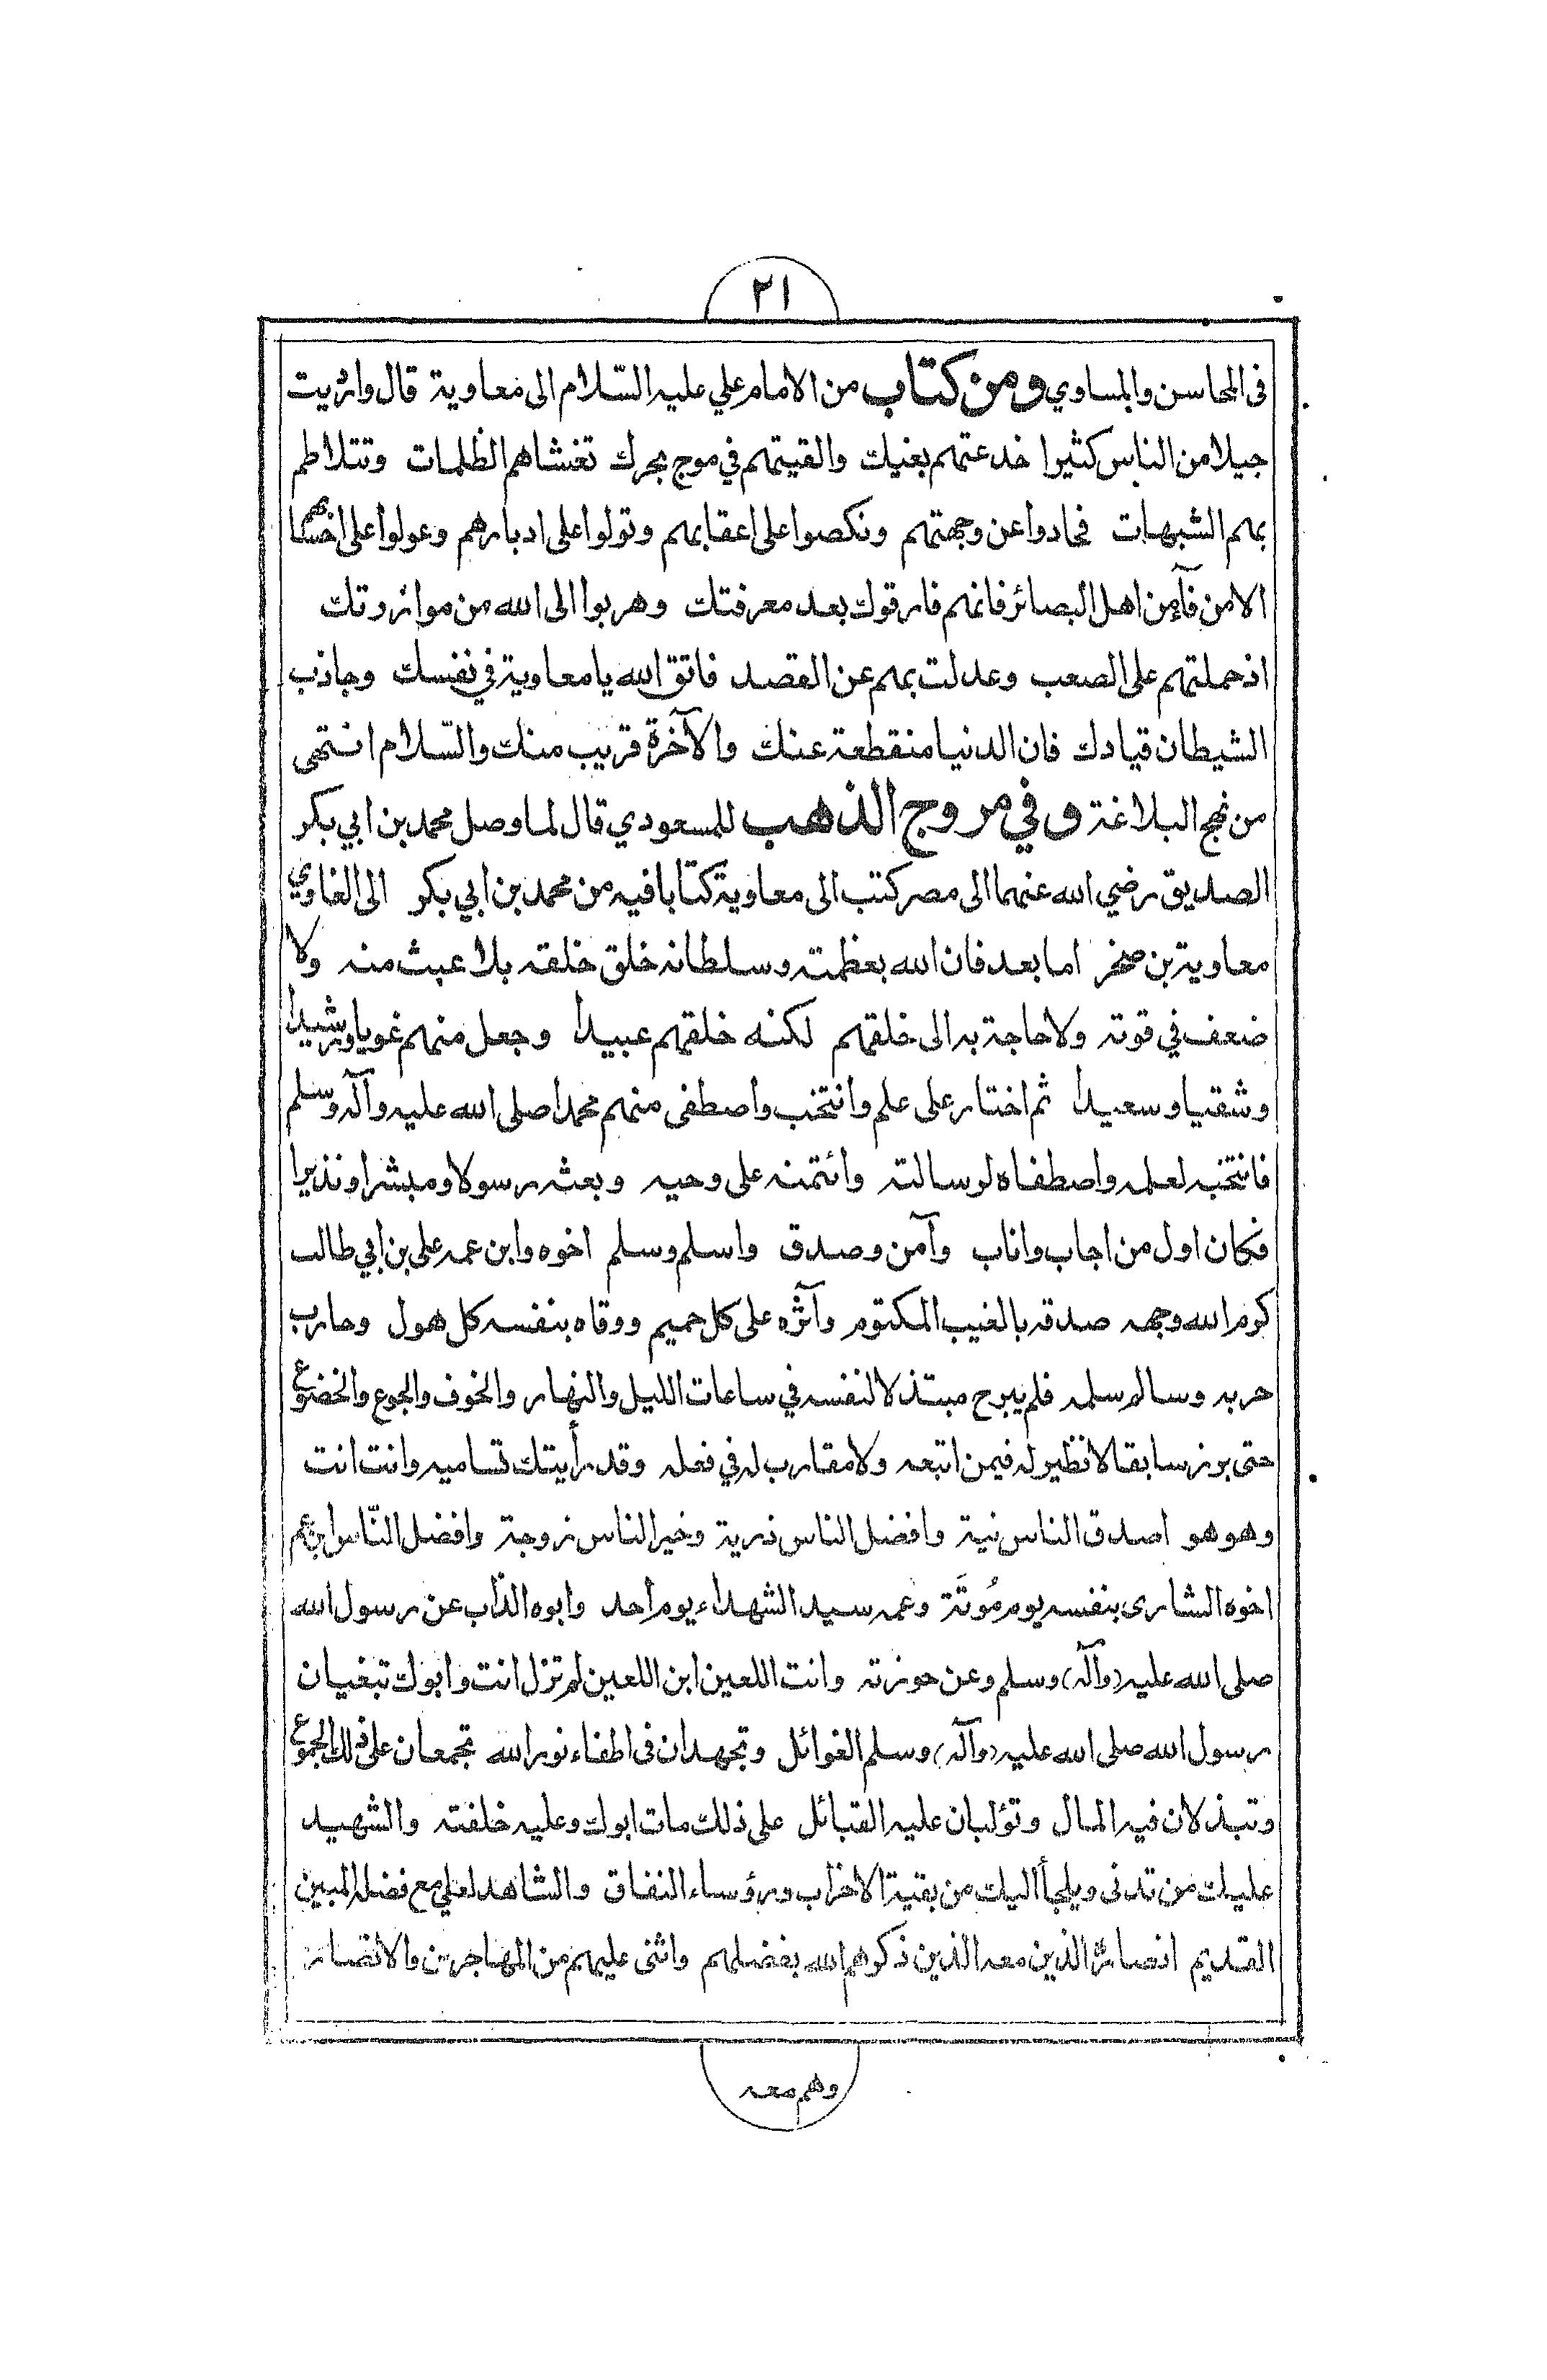 ٢١
في المحاسن والمساوي ومن كتاب من الامام علي عليه السّلام الى معاوية قال وارديت
جيلا من الناس كثيرا خدعتهم بغيك والقيتهم في موج بحرك تغشاهم الظلمات وتتلاطم
بهم الشبهات فحادوا عن وجهتهم ونكصوا على اعقابهم وتولوا على ادبارهم وعولوا على احسابهم
الا من فآء من اهل البصائر فانهم فارقوك بعد معرفتك وهربوا الى الله من موازرتك
اذ حملتهم على الصعب وعدلت بهم عن القصد فاتق الله يا معاوية في نفسك وجاذب
الشيطان قيادك فان الدنيا منقطعة عنك والآخرة قريب منك والسّلام انتهى
من نهج البلاغة وفي مروج الذهب للمسعودي قال لما وصل محمد بن ابي بكر
الصديق رضي الله عنهما الى مصر كتب الى معاوية كتابا فيه من محمد بن ابي بكر الى الغاوي
معاوية بن صخر اما بعد فان الله بعظمته وسلطانه خلق خلقه بلا عبث منه ولا
ضعف في قوته ولا حاجة به الى خلقهم لكنه خلقهم عبيدا وجعل منهم غويا ورشيدا
وشقيا وسعيدا ثم اختار على علم وانتخب واصطفى منهم محمدا صلى الله عليه وآله وسلم
فانتخبه لعلمه واصطفاه لرسالته وائتمنه على وحيه وبعثه رسولا ومبشرا ونذيرا
فكان اول من اجاب واناب وآمن وصدق واسلم وسلم اخوه وابن عمه علي بن ابي طالب
كرم الله وجهه صدقه بالغيب المكتوم وآثره على كل حميم ووقاه بنفسه كل هول وحارب
حربه وسالم سلمه فلم يبرح مبتذلا لنفسه في ساعات الليل والنهار والخوف والجوع والخضوع
حتى برز سابقا لا نظير له فيمن اتبعه ولا مقارب له في فعله وقد رأيتك تساميه وانت انت
وهو هو اصدق الناس نية وافضل الناس ذرية وخير الناس زوجة وافضل النّاس ابن عم
اخوه الشارى بنفسه يوم مُوتَة وعمه سيد الشهداء يوم احد وابوه الذّاب عن رسول الله
صلى الله عليه (وآله) وسلم وعن حوزته وانت اللعين ابن اللعين لم تزل انت وابوك تبغيان
رسول الله صلى الله عليه (وآله) وسلم الغوائل وتجهدان في اطفاء نور الله تجمعان على ذلك الجموع
وتبذلان فيه المال وتؤلبان عليه القبائل على ذلك مات ابوك وعليه خلفته والشهيد
عليك من تدنى ويلجأ اليك من بقية الاحزاب ورؤساء النفاق والشاهد لعلي مع فضله المبين
القديم انصاره الذين معه الذين ذكرهم الله بفضلهم واثنى عليهم من المهاجرين والانصار
وهم معه